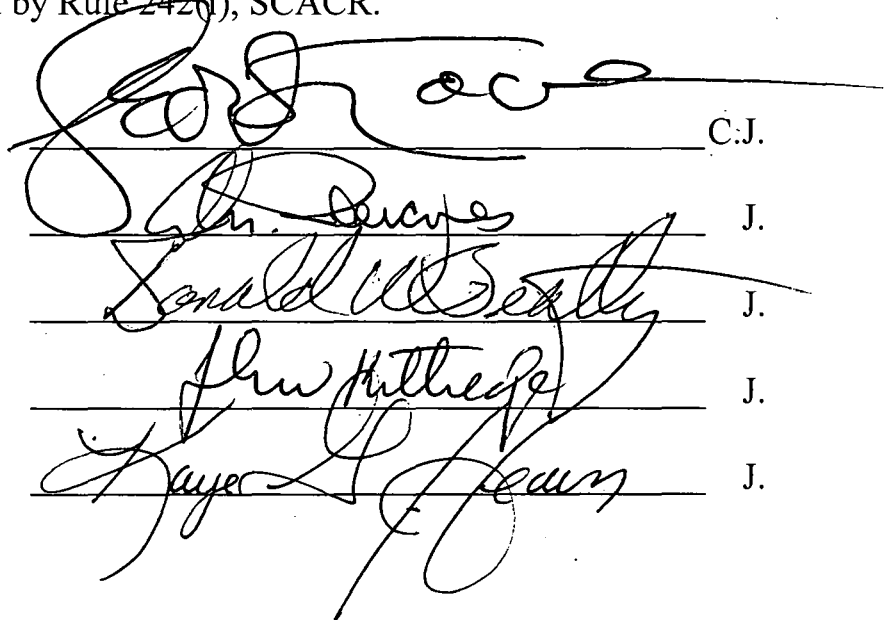 by Rule 242(i), SCACR.
C.J.
J.
Donald W Beatty J.
John Kittredge J.
Kaye G Hearn J.